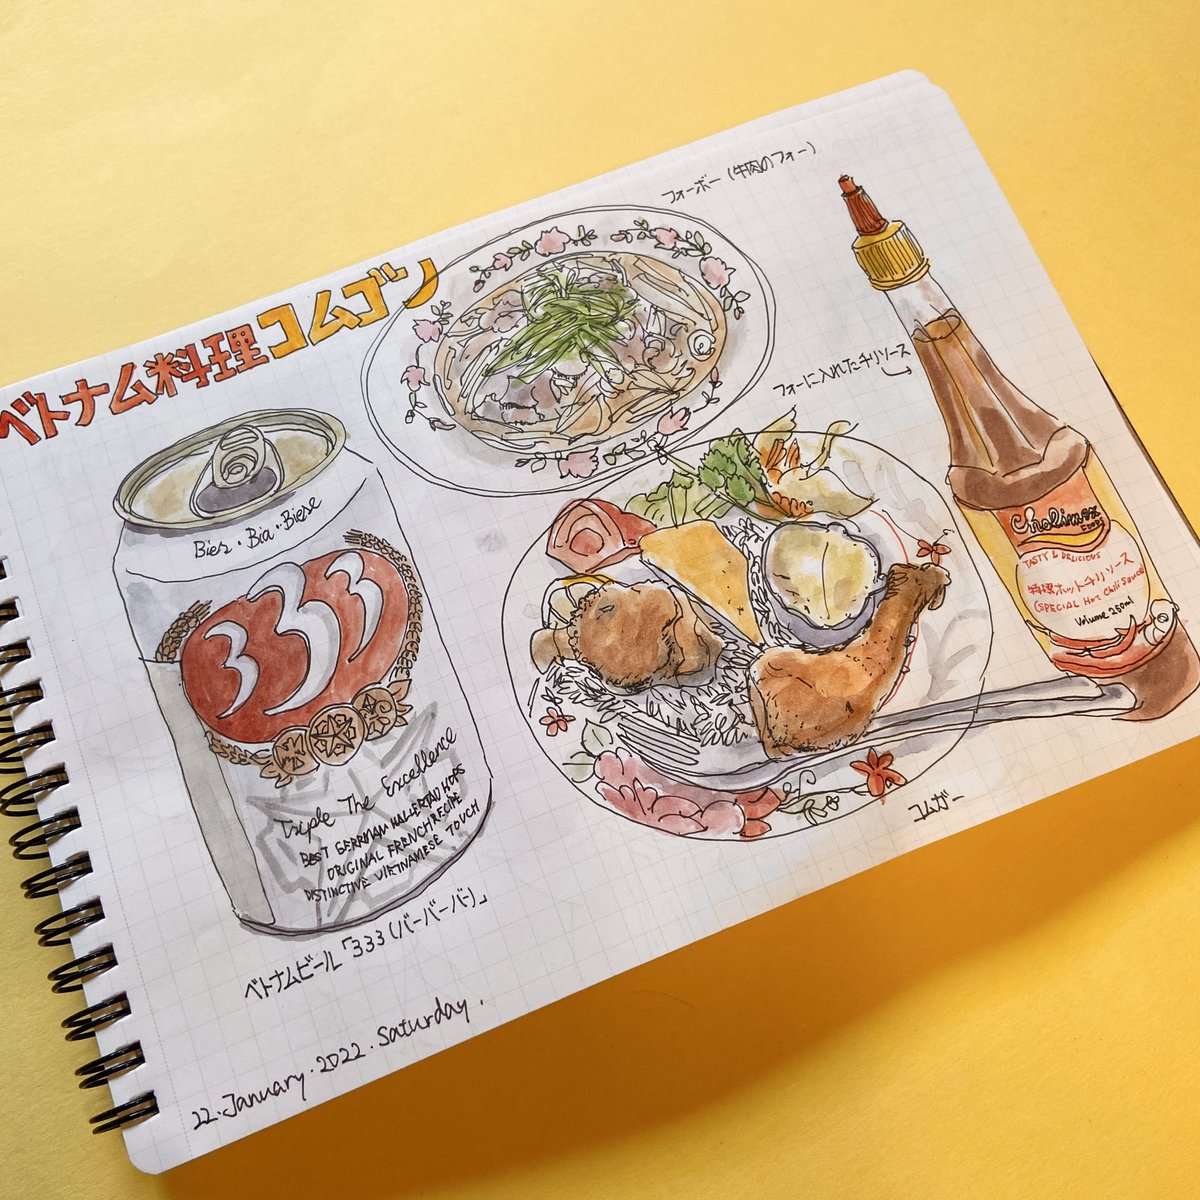 ベトナム料理コムゴン
フォーボー (牛肉のフォー)
フォーに入れたチリソース
Bier・Bia・Biese
333
Triple The Excellence
BEST GERRMAN HALLERTAD HOPS
ORIGINAL FRENCH RECIPE
DISTINCTIVE VIETNAMESE TOUCH
ベトナムビール「333(バーバーバー)」
Cholimex
FOODS
TASTY & DELICIOUS
特撰ホットチリソース
(SPECIAL HOT Chili Sauce)
Volume 250ml
コムガー
22.January.2022.Saturday.